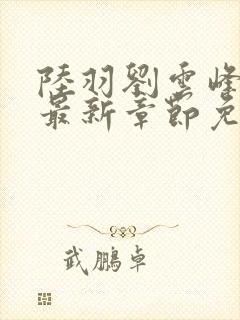 陸羽劉雲峰
最新章節免
武鵬卓